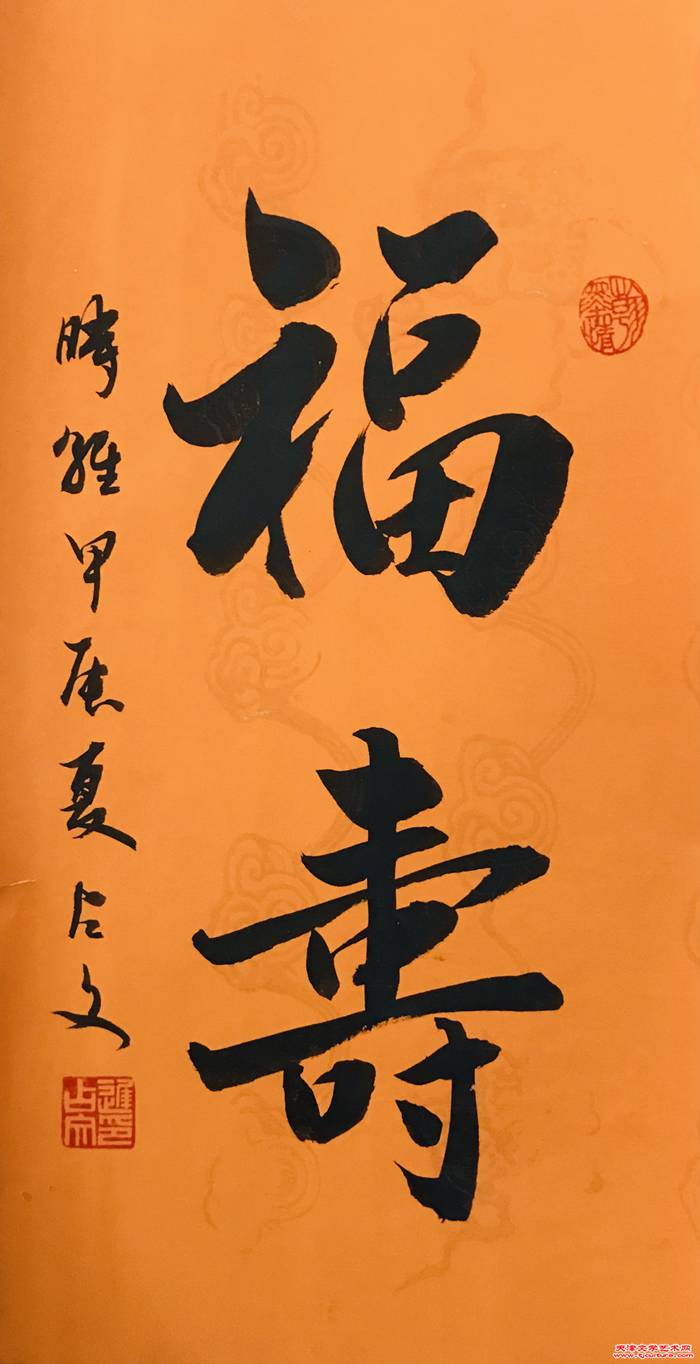 福壽
時維甲辰夏占文
天津文学艺术网
www.tjculture.com